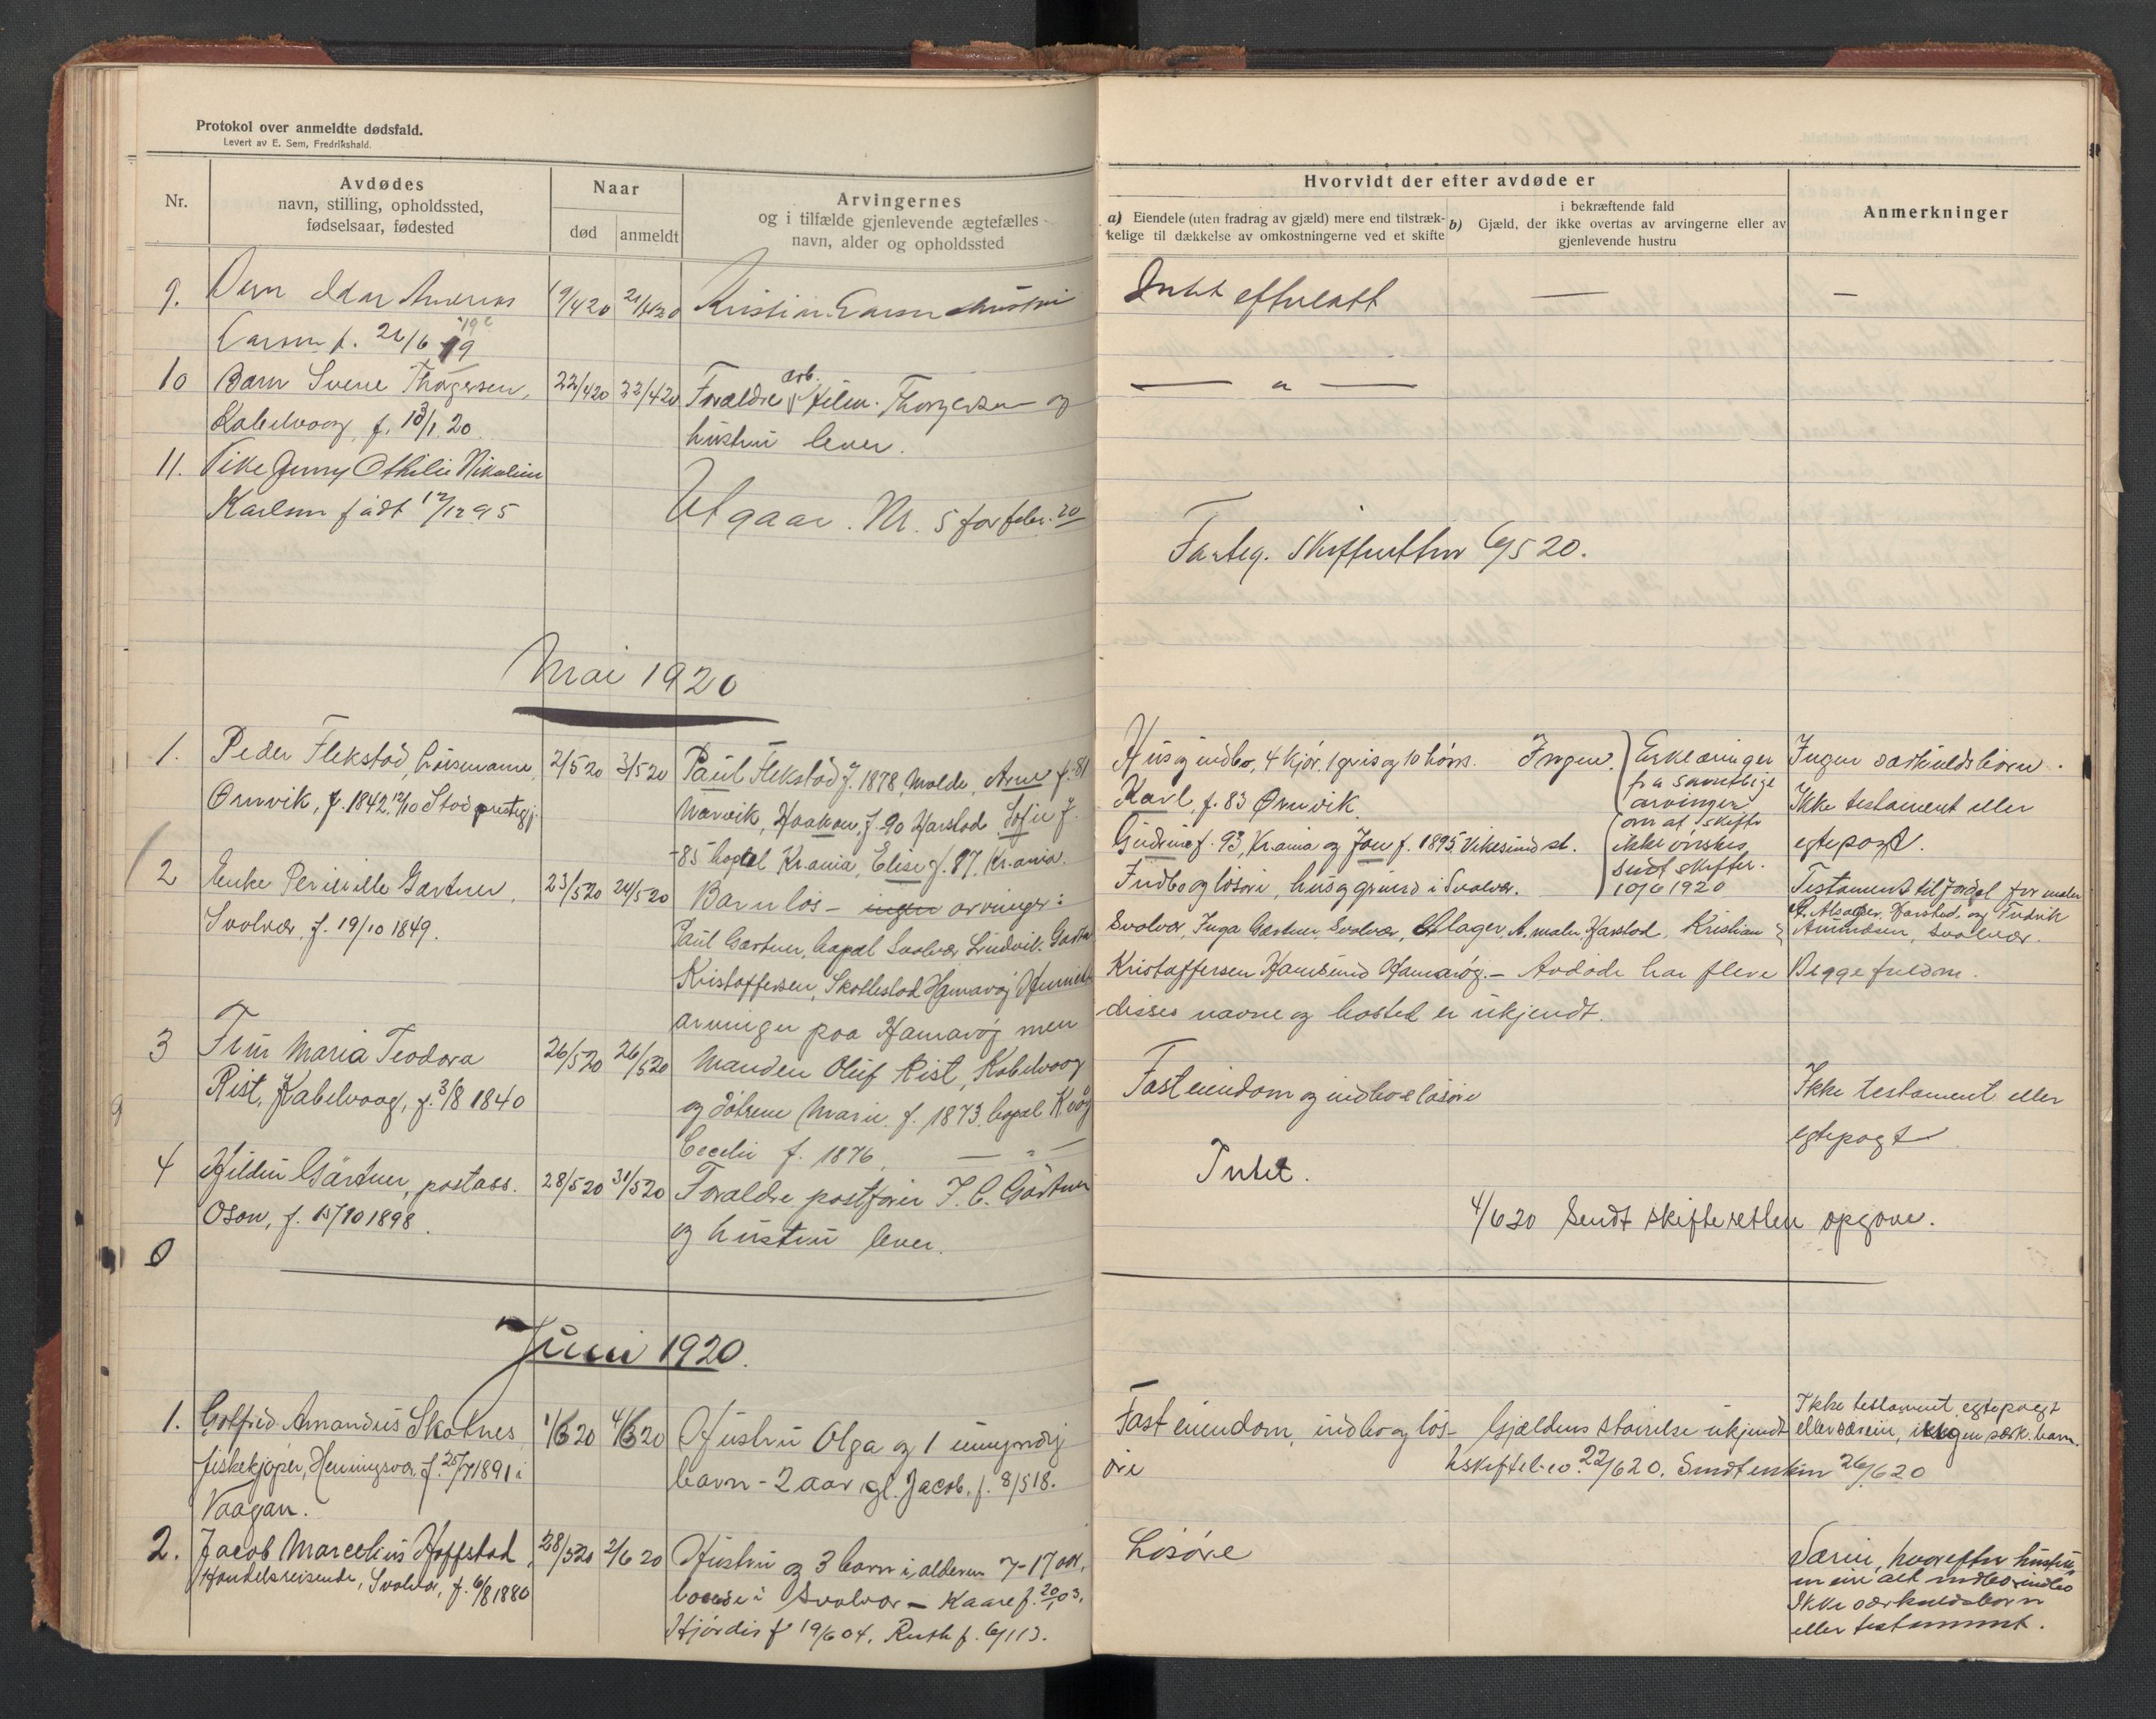 Protokol over anmeldte dødsfald.
Levert av E. Sem, Fredrikshald.
Nr.
Avdødes
navn, stilling, opholdssted,
fødselsaar, fødested
Naar
død
anmeldt
Arvingernes
og i tilfælde gjenlevende ægtefælles
navn, alder og opholdssted
Hvorvidt der efter avdøde er
a) Eiendele (uten fradrag av gjæld) mere end tilstræk-
kelige til dækkelse av omkostningerne ved et skifte
i bekræftende fald
b) Gjæld, der ikke overtas av arvingerne eller av
gjenlevende hustru
Anmerkninger
9.
Larsen f. 21/6 19
19/4 20 21/4 20
Intet efterlatt — —
10 Barn Sverre Thorgersen, 22/4 20 22/4 20 Forældre arb. Hilm. Thorgersen og
Kabelvaag, f. 13/1 20. hustru lever.
— " —
11. Pike Jenny Othilie Nikoline
Karlsen født 12/12 95
Utgaar. Nr. 5 for febr. 20
Skifteretten 6/5 20.
Mai 1920
1. Peder Flekstad, 2/5 20 3/5 20 Paul Flekstad f. 1878, Molde, Arne f. 81
Ørnvik, f. 1842 12/10 Stod prestegj. Narvik, Haakon, f. 90 Harstad Sofie f.
85 bopæl Kr.ania, Elise f. 87, Kr.ania.
Hus og indbo, 4 kjør, 1 gris og 10 høns. Ingen.
Karl f. 83 Ørnvik.
Gudrun f. 93, Kr.ania og Jon f. 1895, Vikesund st.
Erklæringer
fra samtlige
arvinger
om at skifte
ikke ønskes
sendt skifter.
10/6 1920
Ingen særkuldsbørn.
Ikke testament eller
egtepagt.
2 Enke Pernille Gærtner, 23/5 20 24/5 20 Barnløs — ingen arvinger:
Svolvær, f. 19/10 1849.
Paul Gærtner, bopæl Svolvær Ludvik Gærtner
Kristoffersen, Skottestad Hamarøy
arvinger paa Hamarøy men
Indbo og løsøre, hus og grund i Svolvær.
Svolvær, Inga Gærtner, Svolvær, A. maler Harstad, Kristian
Kristoffersen Hamsund Hamarøy. — Avdøde har flere
disses navne og bosted er ukjendt.
Testament til fordel for maler
Harstad, og Fredrik
Amundsen, Svolvær.
Begge fuldm.
3 Fru Maria Teodora 26/5 20 26/5 20 Manden Oluf Rist, Kabelvaag
Rist, Kabelvaag, f. 3/8 1840 og døtrene Marie f. 1873, bopæl Kvåg
Cecelie f. 1876, — " —
Fast eiendom og indbo & løsøre
Ikke testament eller
egtepagt
4 Hildur Gärtner, postass. 28/5 20 31/5 20 Forældre postfører J. C. Gärtner
Osan, f. 15/10 1898. og hustru lever.
Intet.
4/6 20 Sendt skifteretten opgave.
Juni 1920.
1. Gotfred Amandus Skotnes 1/6 20 4/6 20 Hustru Olga og 1 umyndig
fiskekjøper, Henningsvær, f. 25/7 1891 i barn — 2 aar gl. Jacob, f. 8/5 18.
Vaagan.
Fast eiendom, indbo og løs- Gjældens størrelse ukjendt
øre
22/6 20. Sendt enken 26/6 20
Ikke testament, egtepagt
eller særeie, ingen særk. barn.
2. Jacob Marcelius Hoffstad, 28/5 20 2/6 20 Hustru og 3 barn i alderen 7-17 aar,
Handelsreisende, Svolvær, f. 6/8 1880 boende i Svolvær — Kaare f. 20/1 03,
Hjørdis f 19/6 04, Ruth f. 6/1 13.
Løsøre
Særeie, hvorefter hustru
en eier alt indbo
Ikke særkuldsbørn
eller testament.